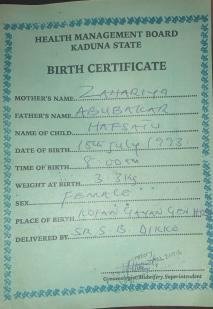 HEALTH MANAGEMENT BOARD
KADUNA STATE
BIRTH CERTIFICATE
MOTHER'S NAME ZAHARIYA
FATHER'S NAME ABUBAKAR
NAME OF CHILD HAFSATU
DATE OF BIRTH 15th July 1993
TIME OF BIRTH 8:00am
WEIGHT AT BIRTH 3.3kg
SEX FEMALE
PLACE OF BIRTH KOFAN GAYAN GEN
DELIVERED BY SR S B DIKKO
Gynaecologist/Midwifery, Superintendent